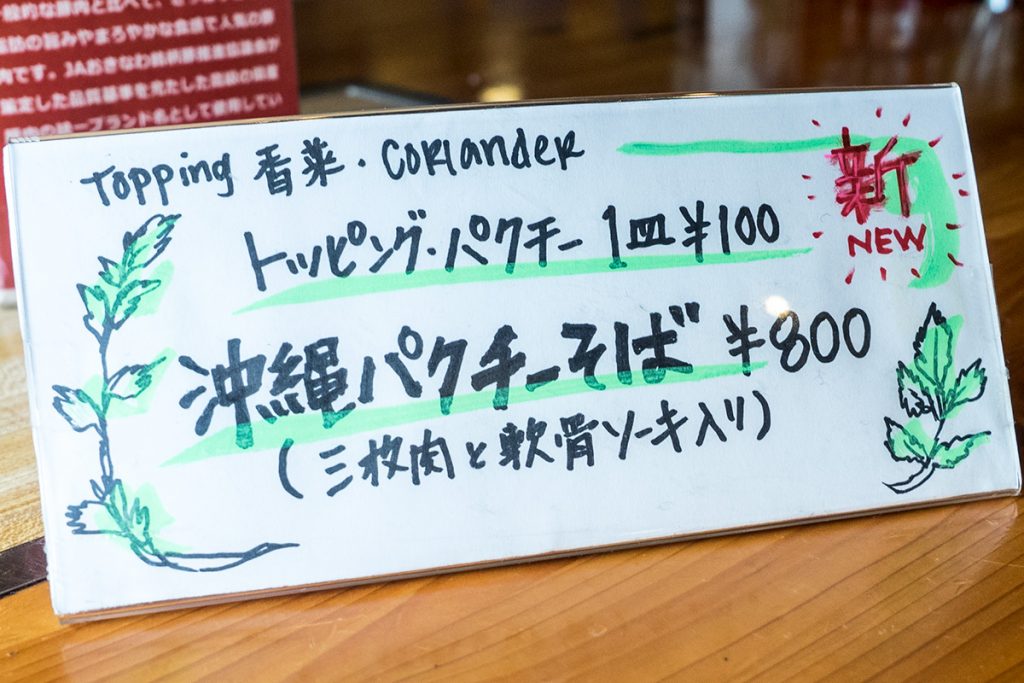 般的な豚肉と比べて、
脂肪の旨みやまろやかな食感で人気の豚
肉です。JAおきなわ銘柄豚推進協議会が
定した品質基準を満たした
ブランド名として使用してい
Topping 香菜・Coriander
新
トッピング・パクチー 1皿¥100
NEW
沖縄パクチーそば ¥800
(三枚肉と軟骨ソーキ入り)